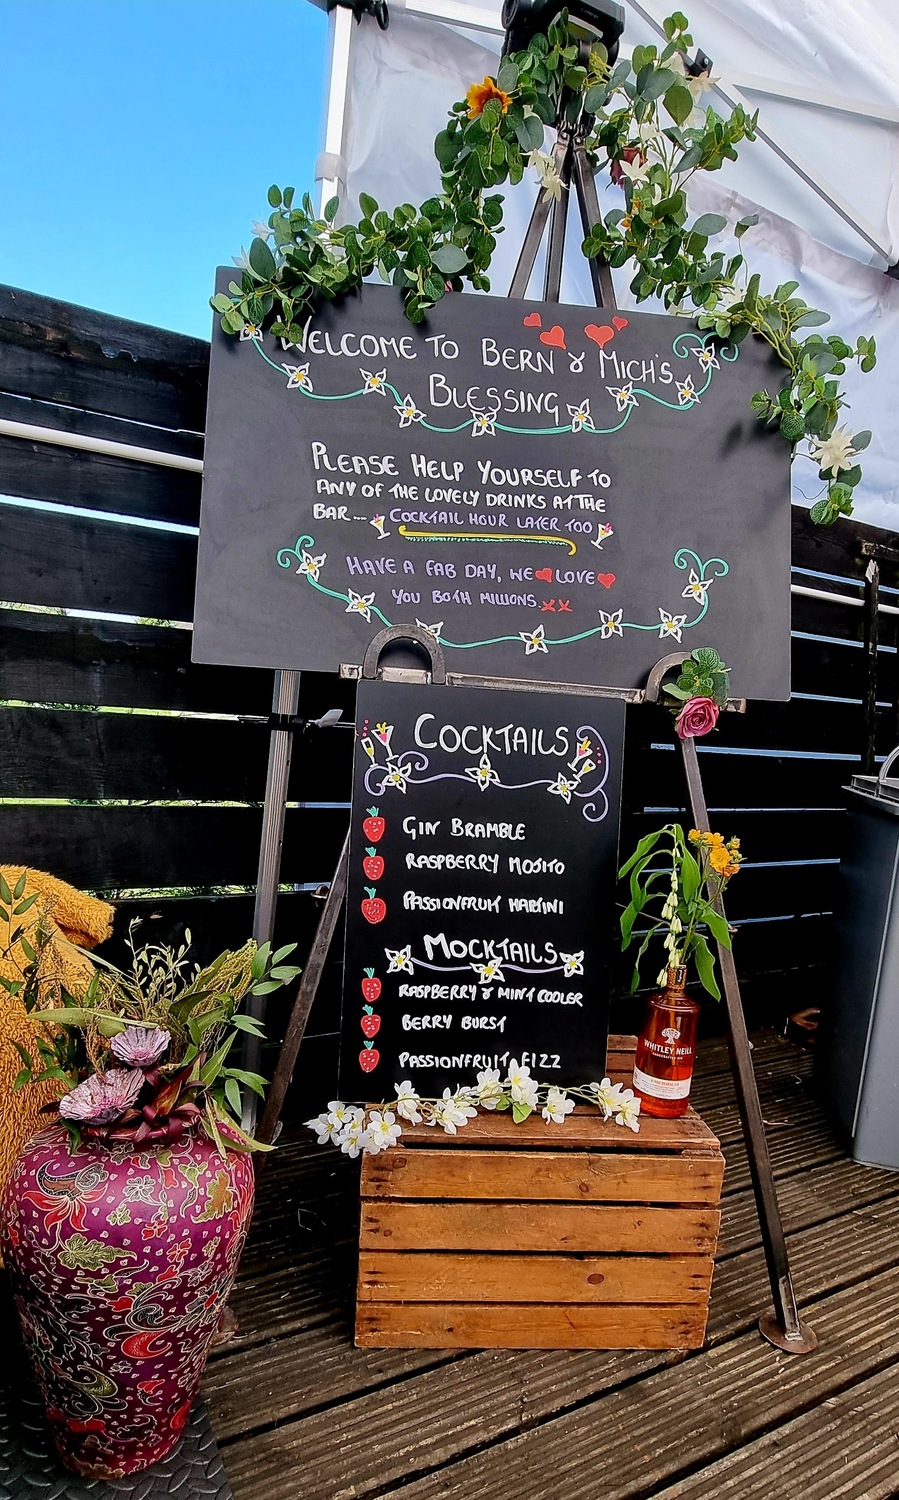 WELCOME TO BERN & MICH'S
BLESSING
PLEASE HELP YOURSELF TO
ANY OF THE LOVELY DRINKS AT THE
BAR... COCKTAIL HOUR LATER TOO
HAVE A FAB DAY, WE LOVE
YOU BOTH MILLIONS. XX
COCKTAILS
GIN BRAMBLE
RASPBERRY MOJITO
PASSIONFRUIT MARTINI
MOCKTAILS
RASPBERRY & MINT COOLER
BERRY BURST
PASSIONFRUIT FIZZ
WHITLEY NEILL